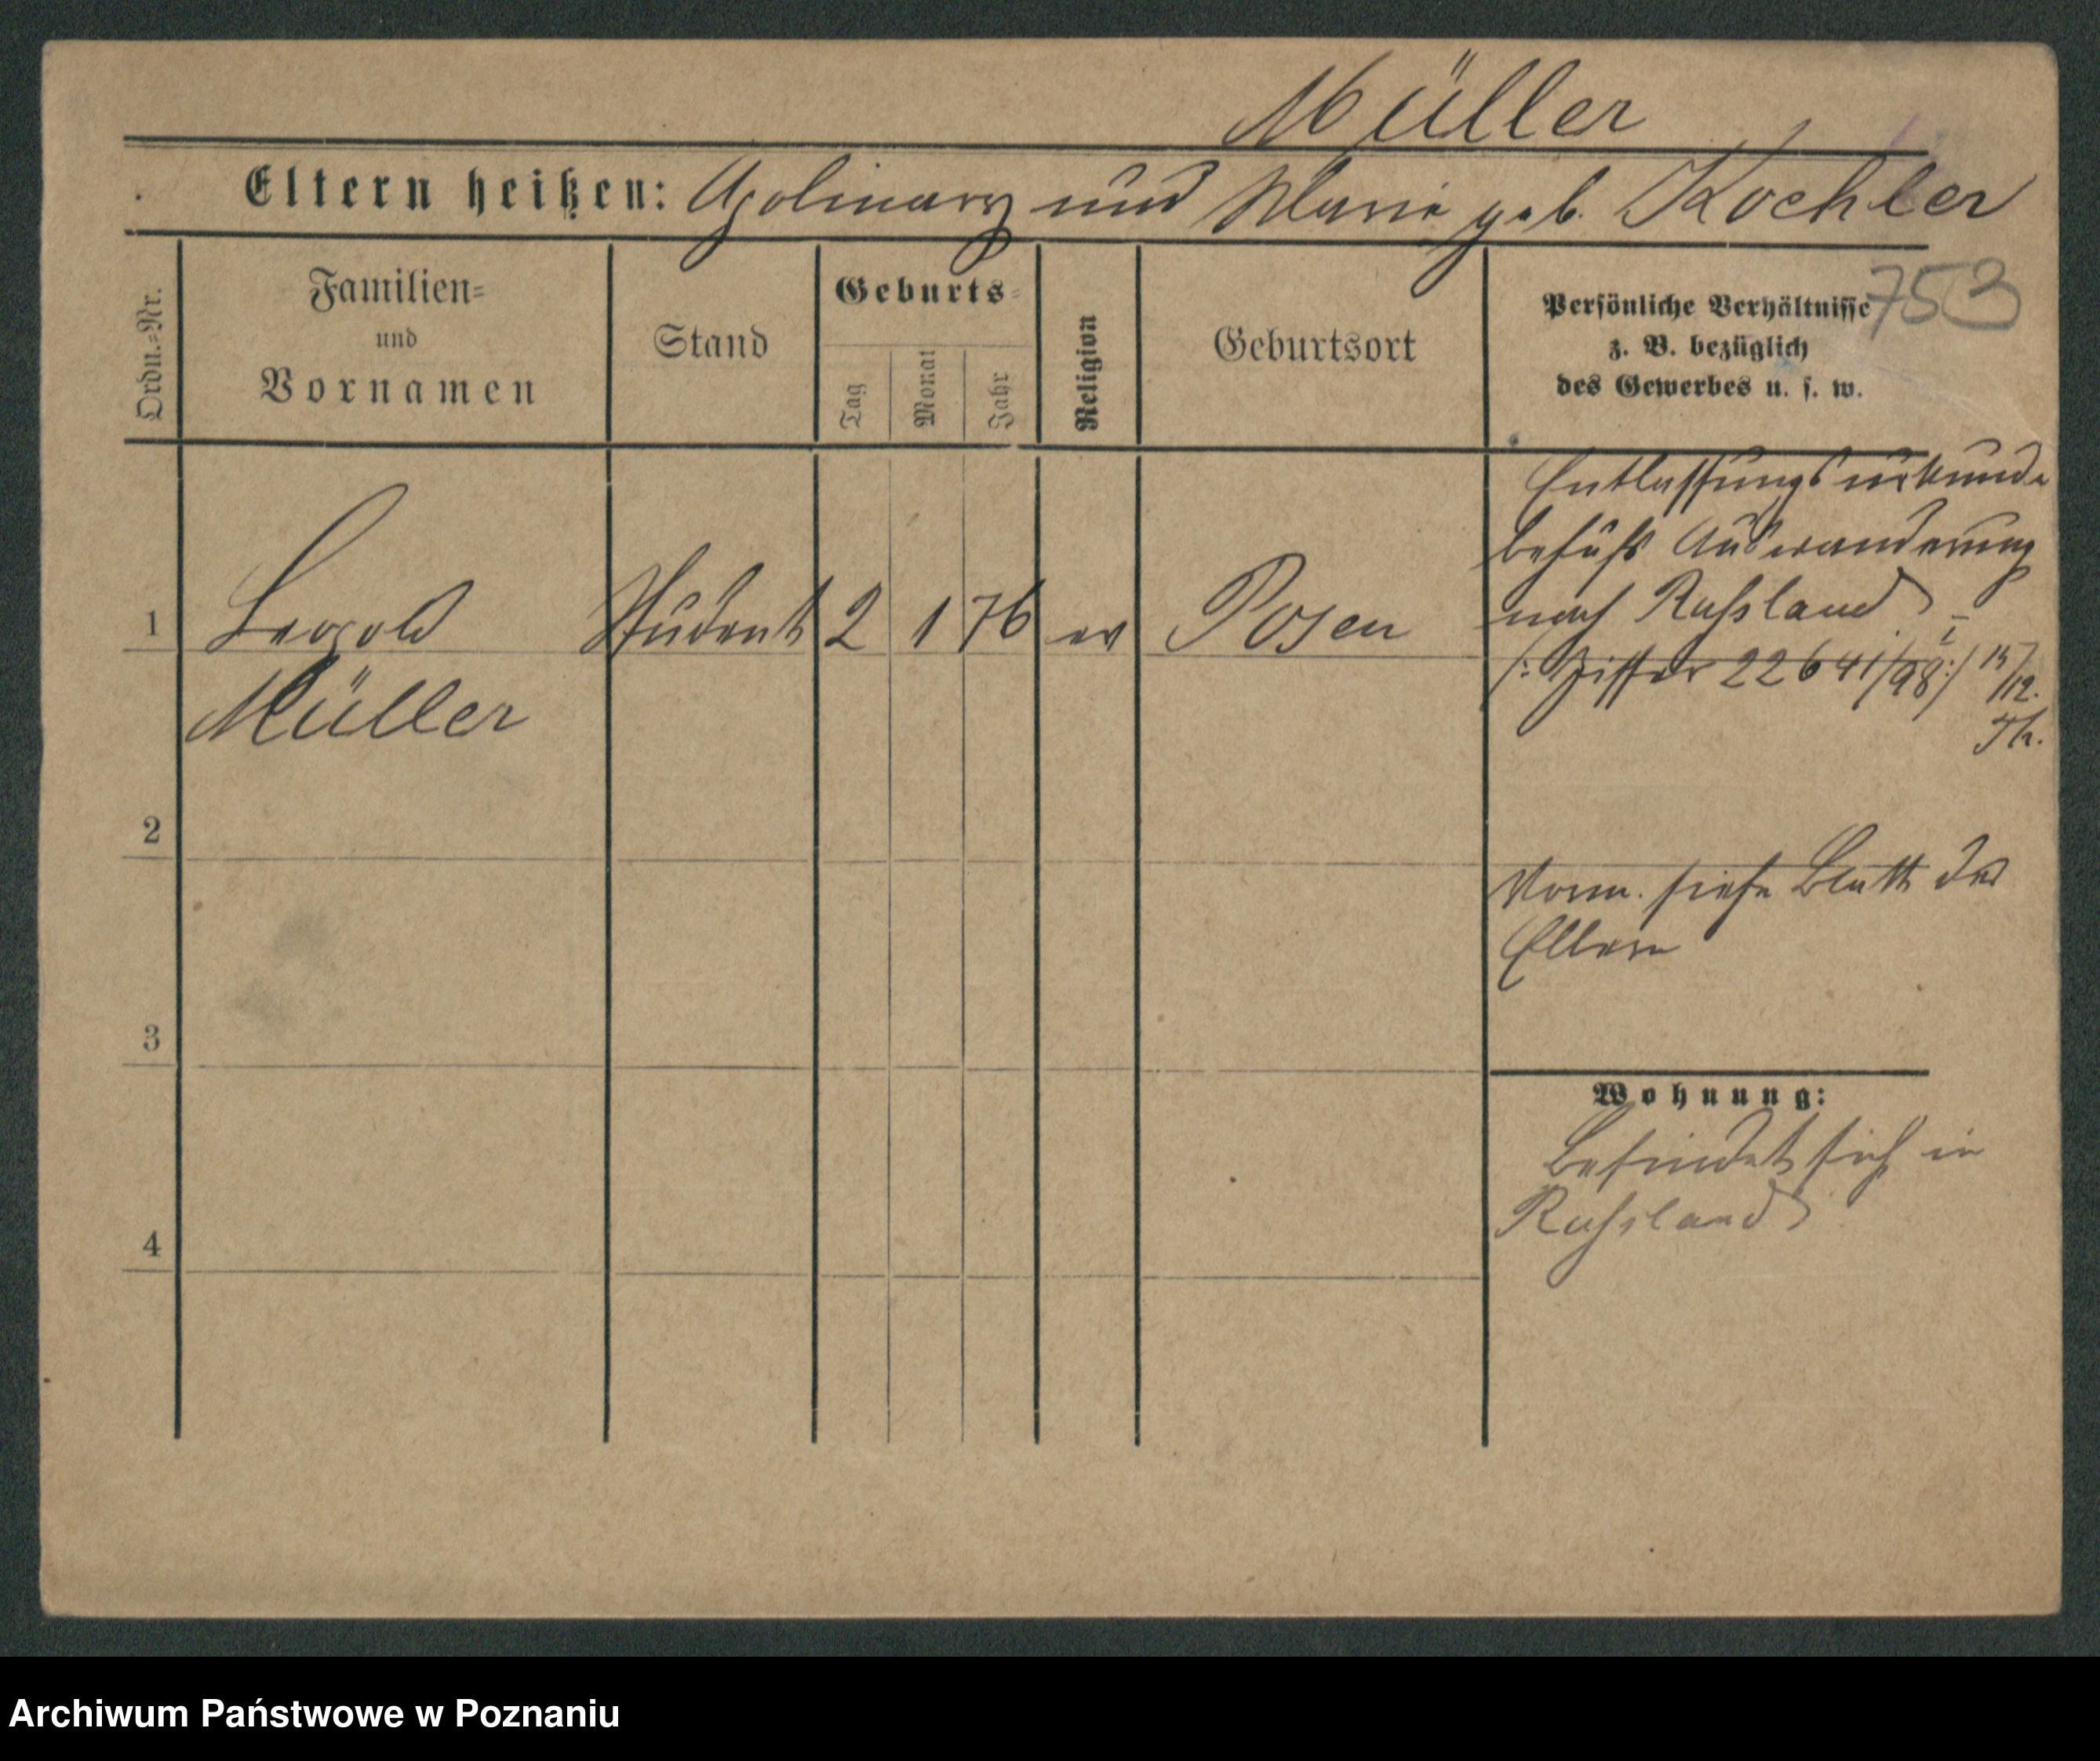 Müller
Eltern heißen: Apolinary und Marie geb. Kochler
753
Ordn.=Nr.
Familien=
und
Vornamen
Stand
Geburts=
Tag
Monat
Jahr
Religion
Geburtsort
Persönliche Verhältnisse
z. B. bezüglich
des Gewerbes u. s. w.
1
Leopold
Müller
Student
2
1
76
ev
Posen
Entlassungsurkunde
behufs Auswanderung
nach Russland
/: Ziffer 22641/98 :/ 15/12.
Th.
2
Vorm. siehe Blatt der
Eltern
3
Wohnung:
befindet sich in
Russland
4
Archiwum Państwowe w Poznaniu